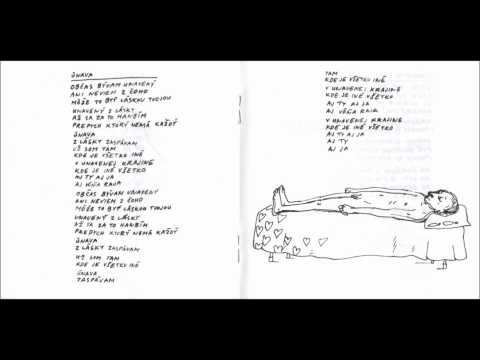 ÚNAVA
OBČAS BÝVAM UNAVENÝ
ANI NEVIEM Z ČOHO
MÔŽE TO BYŤ LÁSKOU TVOJOU
UNAVENÝ Z LÁSKY
AŽ SA ZA TO HANBÍM
PREPYCH KTORÝ NEMÁ KAŽDÝ
ÚNAVA
Z LÁSKY ZASPÁVAM
UŽ SOM TAM
KDE JE VŠETKO INÉ
V UNAVENEJ KRAJINE
KDE JE INÉ VŠETKO
AJ TY AJ JA
AJ VÔŇA RAJA
OBČAS BÝVAM UNAVENÝ
ANI NEVIEM Z ČOHO
MÔŽE TO BYŤ LÁSKOU TVOJOU
UNAVENÝ Z LÁSKY
AŽ SA ZA TO HANBÍM
PREPYCH KTORÝ NEMÁ KAŽDÝ
ÚNAVA
Z LÁSKY ZASPÁVAM
UŽ SOM TAM
KDE JE VŠETKO INÉ
ÚNAVA
ZASPÁVAM
TAM
KDE JE VŠETKO INÉ
V UNAVENEJ KRAJINE
KDE JE INÉ VŠETKO
AJ TY AJ JA
AJ VÔŇA RAJA
V UNAVENEJ KRAJINE
KDE JE INÉ VŠETKO
AJ TY AJ JA
AJ TY
AJ JA